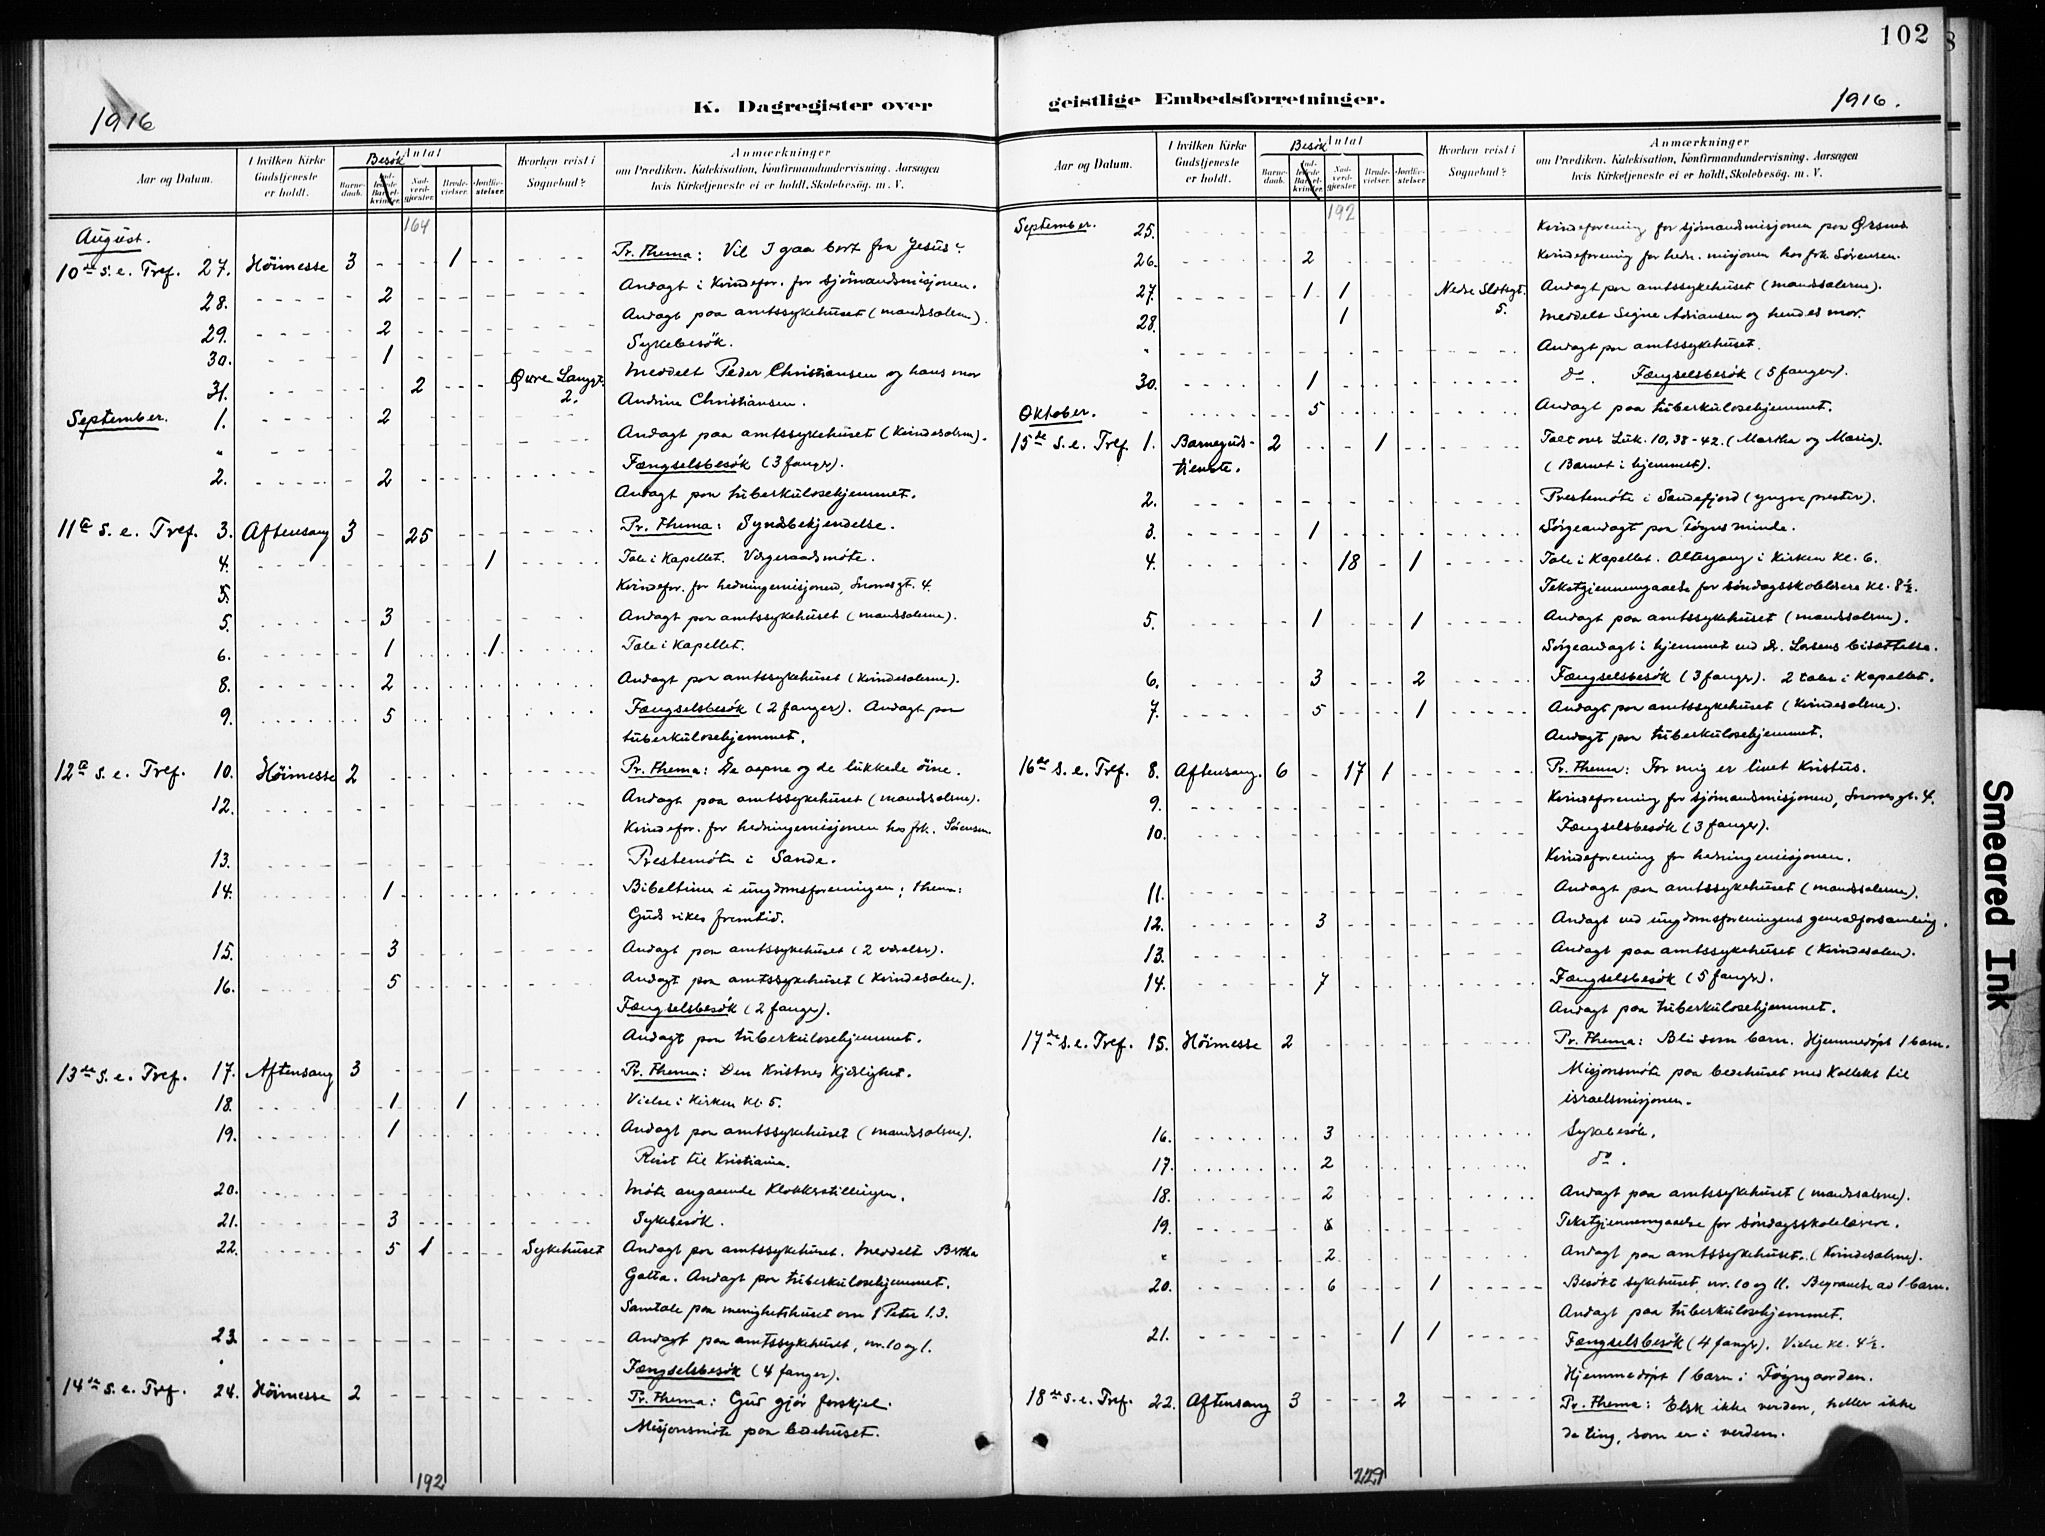 102
1916
K. Dagregister over
geistlige Embedsforretninger.
1916.
Aar og Datum.
I hvilken Kirke Gudstjeneste er holdt.
Besök
Antal
Barnedaab.
Indledede Barselkvinder.
Nadverdgjæster.
Brudevielser.
Jordfæstelser.
Hvorhen reist i Sognebud?
Anmærkninger
om Prædiken, Katekisation, Konfirmandundervisning, Aarsagen
hvis Kirketjeneste ei er holdt, Skolebesøg. m. V.
164
August.
10de S. e. Tref. 27. Höimesse 3 1 Pr. Thema: Vil I gaa bort fra Jesus?
28. 2 Andagt i Kvindefor. for Sjömandsmisjonen.
29. 2 Andagt paa amtssykehuset (mandssalen).
30. 1 Sykebesök.
31. 2 Øvre Langgt. 2. Meddelt Peder Christiansen og hans mor
Andrine Christiansen.
September. 1. 2 Andagt paa amtssykehuset (Kvindesalen).
" Fængselsbesök (3 fanger).
2. 2 Andagt paa tuberkulosehjemmet.
11te S. e. Tref. 3. Aftensang 3 25 Pr. Thema: Syndsbekjendelse.
4. 1 Tale i Kapellet. Vergeraadsmöte.
5. Kvindefor. for hedningemisjonen, Snorresgt. 4.
5. 3 Andagt paa amtssykehuset (mandssalerne).
6. 1 1 Tale i Kapellet.
8. 2 Andagt paa amtssykehuset (Kvindesalerne).
9. 5 Fængselsbesök (2 fanger). Andagt paa
tuberkulosehjemmet.
12te S. e. Tref. 10. Höimesse 2 Pr. Thema: De aapne og de lukkede öine.
12. Andagt paa amtssykehuset (mandssalerne).
Kvindefor. for hedningemisjonen hos frk. Sörensen.
13. Prestemöte i Sande.
14. 1 Bibeltime i ungdomsforeningen; Thema:
Guds rikes fremtid.
15. 3 Andagt paa amtssykehuset (2 værelser).
16. 5 Andagt paa amtssykehuset (Kvindesalen).
Fængselsbesök (2 fanger).
Andagt paa tuberkulosehjemmet.
13de S. e. Tref. 17. Aftensang 3 Pr. Thema: Den Kristnes Kjærlighet.
18. 1 1 Vielse i Kirken kl. 5.
19. 1 Andagt paa amtssykehuset (mandssalerne).
Reist til Kristiania.
20. Möte angaaende Klokkerstillingen.
21. 3 Sykebesök.
22. 5 1 Sykehuset Andagt paa amtssykehuset. Meddelt Berta
Andagt paa tuberkulosehjemmet.
Samtale paa menighetshuset om 1 Peter 1.3.
23. Andagt paa amtssykehuset, nr. 10 og 1.
Fængselsbesök (4 fanger).
14de S. e. Tref. 24. Höimesse 2 Pr. Thema: Gud gjör forskjel.
Misjonsmöte paa bedehuset.
192
Aar og Datum.
I hvilken Kirke Gudstjeneste er holdt.
Besök
Antal
Barnedaab.
Indledede Barselkvinder.
Nadverdgjæster.
Brudevielser.
Jordfæstelser.
Hvorhen reist i Sognebud?
Anmærkninger
om Prædiken, Katekisation, Konfirmandundervisning, Aarsagen
hvis Kirketjeneste ei er holdt, Skolebesøg. m. V.
192
September. 25. Kvindeforening for sjömandsmisjonen paa Ørsnes
26. 2 Kvindeforening for hedn. misjonen hos frk. Sörensen.
27. 1 1 Nedre Slotsgt. 5. Andagt paa amtssykehuset (mandssalerne).
28. 1 Meddelt Signe Adriansen og hendes mor.
" Andagt paa amtssykehuset.
30. 1 do. Fængselsbesök (5 fanger).
Oktober. 5 Andagt paa tuberkulosehjemmet.
15de S. e. Tref. 1. Barnegudstjeneste. 2 1 Talt over Luk. 10, 38-42. (Martha og Maria).
(Barnet i hjemmet).
2. Prestemöte i Sandefjord (yngre prester).
3. 1 Sörgeandagt paa Föynes minde.
4. 18 1 Tale i Kapellet. Altergang i Kirken kl. 6.
Tekstgjennemgaaelse for söndagsskolelærere kl. 8½.
5. 1 1 Andagt paa amtssykehuset (mandssalerne).
Sörgeandagt i hjemmet ved Dr. Larsens bisættelse.
6. 3 2 Fængselsbesök (3 fanger). 2 taler i Kapellet.
7. 5 1 Andagt paa amtssykehuset (Kvindesalerne).
Andagt paa tuberkulosehjemmet.
16de S. e. Tref. 8. Aftensang. 6 17 1 Pr. Thema: For mig er livet Kristus.
9. Kvindeforening for sjömandsmisjonen, Snorresgt. 4.
10. Fængselsbesök (3 fanger).
Kvindeforening for hedningemisjonen.
11. Andagt paa amtssykehuset (mandssalerne).
12. 3 Andagt ved ungdomsforeningens generalforsamling.
13. Andagt paa amtssykehuset (Kvindesalen).
14. 7 Fængselsbesök (5 fanger).
Andagt paa tuberkulosehjemmet.
17de S. e. Tref. 15. Höimesse 2 Pr. Thema: Bli som barn. Hjemmedöpt 1 barn.
Misjonsmöte paa bedehuset med Kollekt til
israelsmisjonen.
16. 3 Sykebesök.
17. 2 do.
18. 2 Andagt paa amtssykehuset (mandssalerne).
19. 6 Tekstgjennemgaaelse for söndagsskolelærere.
" 2 Andagt paa amtssykehuset. (Kvindesalerne).
20. 6 1 Besökt sykehuset, nr. 10 og 11. Begravelse av 1 barn.
Andagt paa tuberkulosehjemmet.
21. 1 1 Fængselsbesök (4 fanger). Vielse kl. 4½.
Hjemmedöpt 1 barn i Föyngaarden.
18de S. e. Tref. 22. Aftensang 3 2 Pr. Thema: Elsk ikke verden, heller ikke
de ting, som er i verden.
229
Smeared Ink